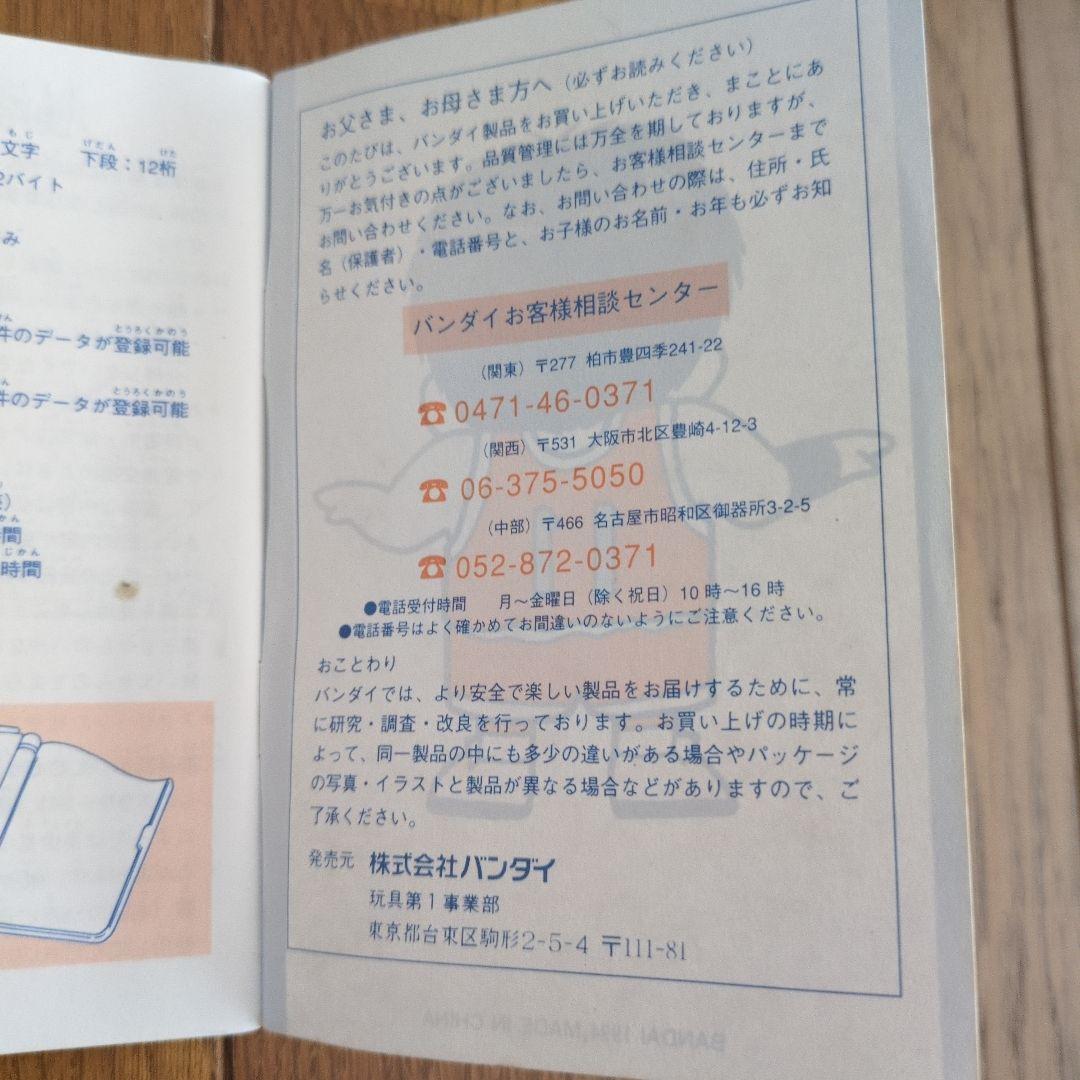 もじ
文字
げだん けた
下段：12桁
2バイト
み
とうろくかのう
件のデータが登録可能
とうろくかのう
件のデータが登録可能
かん
間
じかん
時間
お父さま、お母さま方へ（必ずお読みください）
このたびは、バンダイ製品をお買い上げいただき、まことにあ
りがとうございます。品質管理には万全を期しておりますが、
万一お気付きの点がございましたら、お客様相談センターまで
お問い合わせください。なお、お問い合わせの際は、住所・氏
名（保護者）・電話番号と、お子様のお名前・お年も必ずお知
らせください。
バンダイお客様相談センター
（関東）〒277 柏市豊四季241-22
☎ 0471-46-0371
（関西）〒531 大阪市北区豊崎4-12-3
☎ 06-375-5050
（中部）〒466 名古屋市昭和区御器所3-2-5
☎ 052-872-0371
●電話受付時間 月～金曜日（除く祝日）10時～16時
●電話番号はよく確かめてお間違いのないようにご注意ください。
おことわり
バンダイでは、より安全で楽しい製品をお届けするために、常
に研究・調査・改良を行っております。お買い上げの時期に
よって、同一製品の中にも多少の違いがある場合やパッケージ
の写真・イラストと製品が異なる場合などがありますので、ご
了承ください。
発売元 株式会社バンダイ
玩具第1事業部
東京都台東区駒形2-5-4 〒111-81
BANDAI 1994,MADE IN CHINA